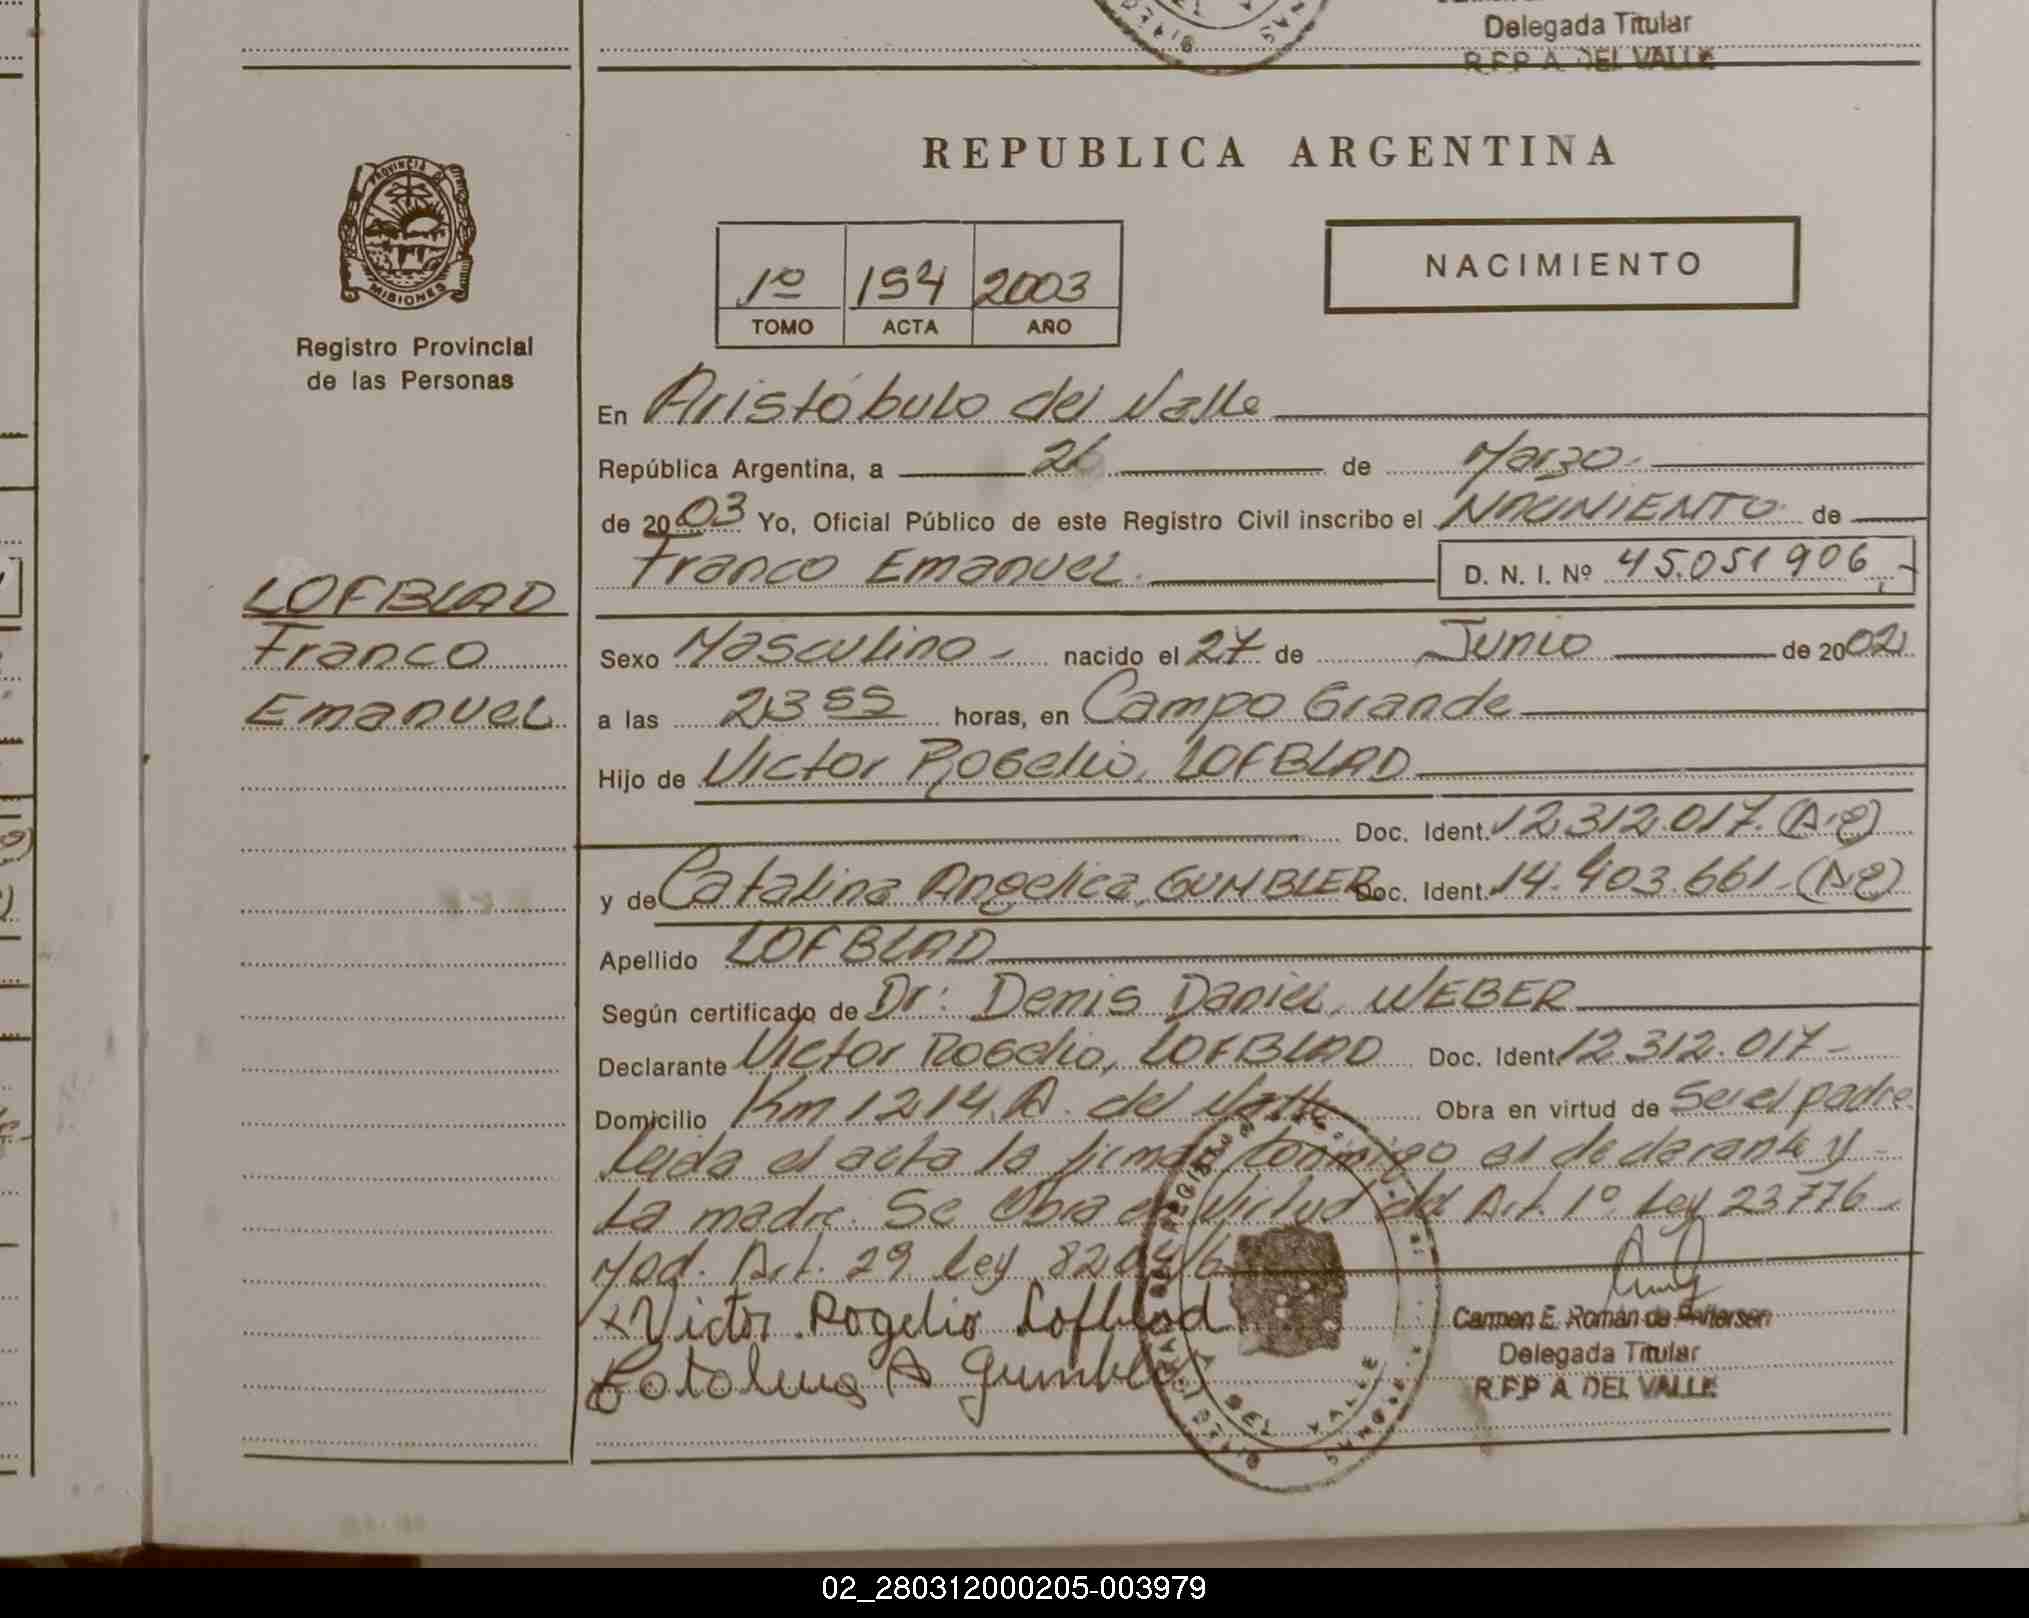 Delegada Titular
R.F.P A. DEL VALLE
REPUBLICA ARGENTINA
PROVINCIA DE
MISIONES
Registro Provincial
de las Personas
1º 154 2003
TOMO ACTA AÑO
NACIMIENTO
En Aristóbulo del Valle
República Argentina, a 26 de Marzo
de 2003 Yo, Oficial Público de este Registro Civil inscribo el NACIMIENTO de
Franco Emanuel D. N. I. Nº 45.051906
LOFBLAD
Franco
Emanuel
Sexo Masculino - nacido el 27 de Junio de 2002
a las 23 55 horas, en Campo Grande
Hijo de Victor Rogelio, LOFBLAD
Doc. Ident. 12.312.017. (Ag)
y de Catalina Angelica, GUMBLER Doc. Ident. 14.403.661- (Ag)
Apellido LOFBLAD
Según certificado de Dr: Denis Daniel, WEBER
Declarante Victor Rogelio, LOFBLAD Doc. Ident. 12.312.017-
Domicilio Km 1214 A. del Valle Obra en virtud de Ser el padre
Leida el acta la firman conmigo el declarante y -
La madre. Se Obra en Virtud del Art. 1º Ley 23776-
Mod. Art. 29 Ley 8204/6
x Victor Rogelio Lofblad
Catalina A Gumbler
Carmen E. Román de Pettersen
Delegada Titular
R.F.P A. DEL VALLE
02_280312000205-003979